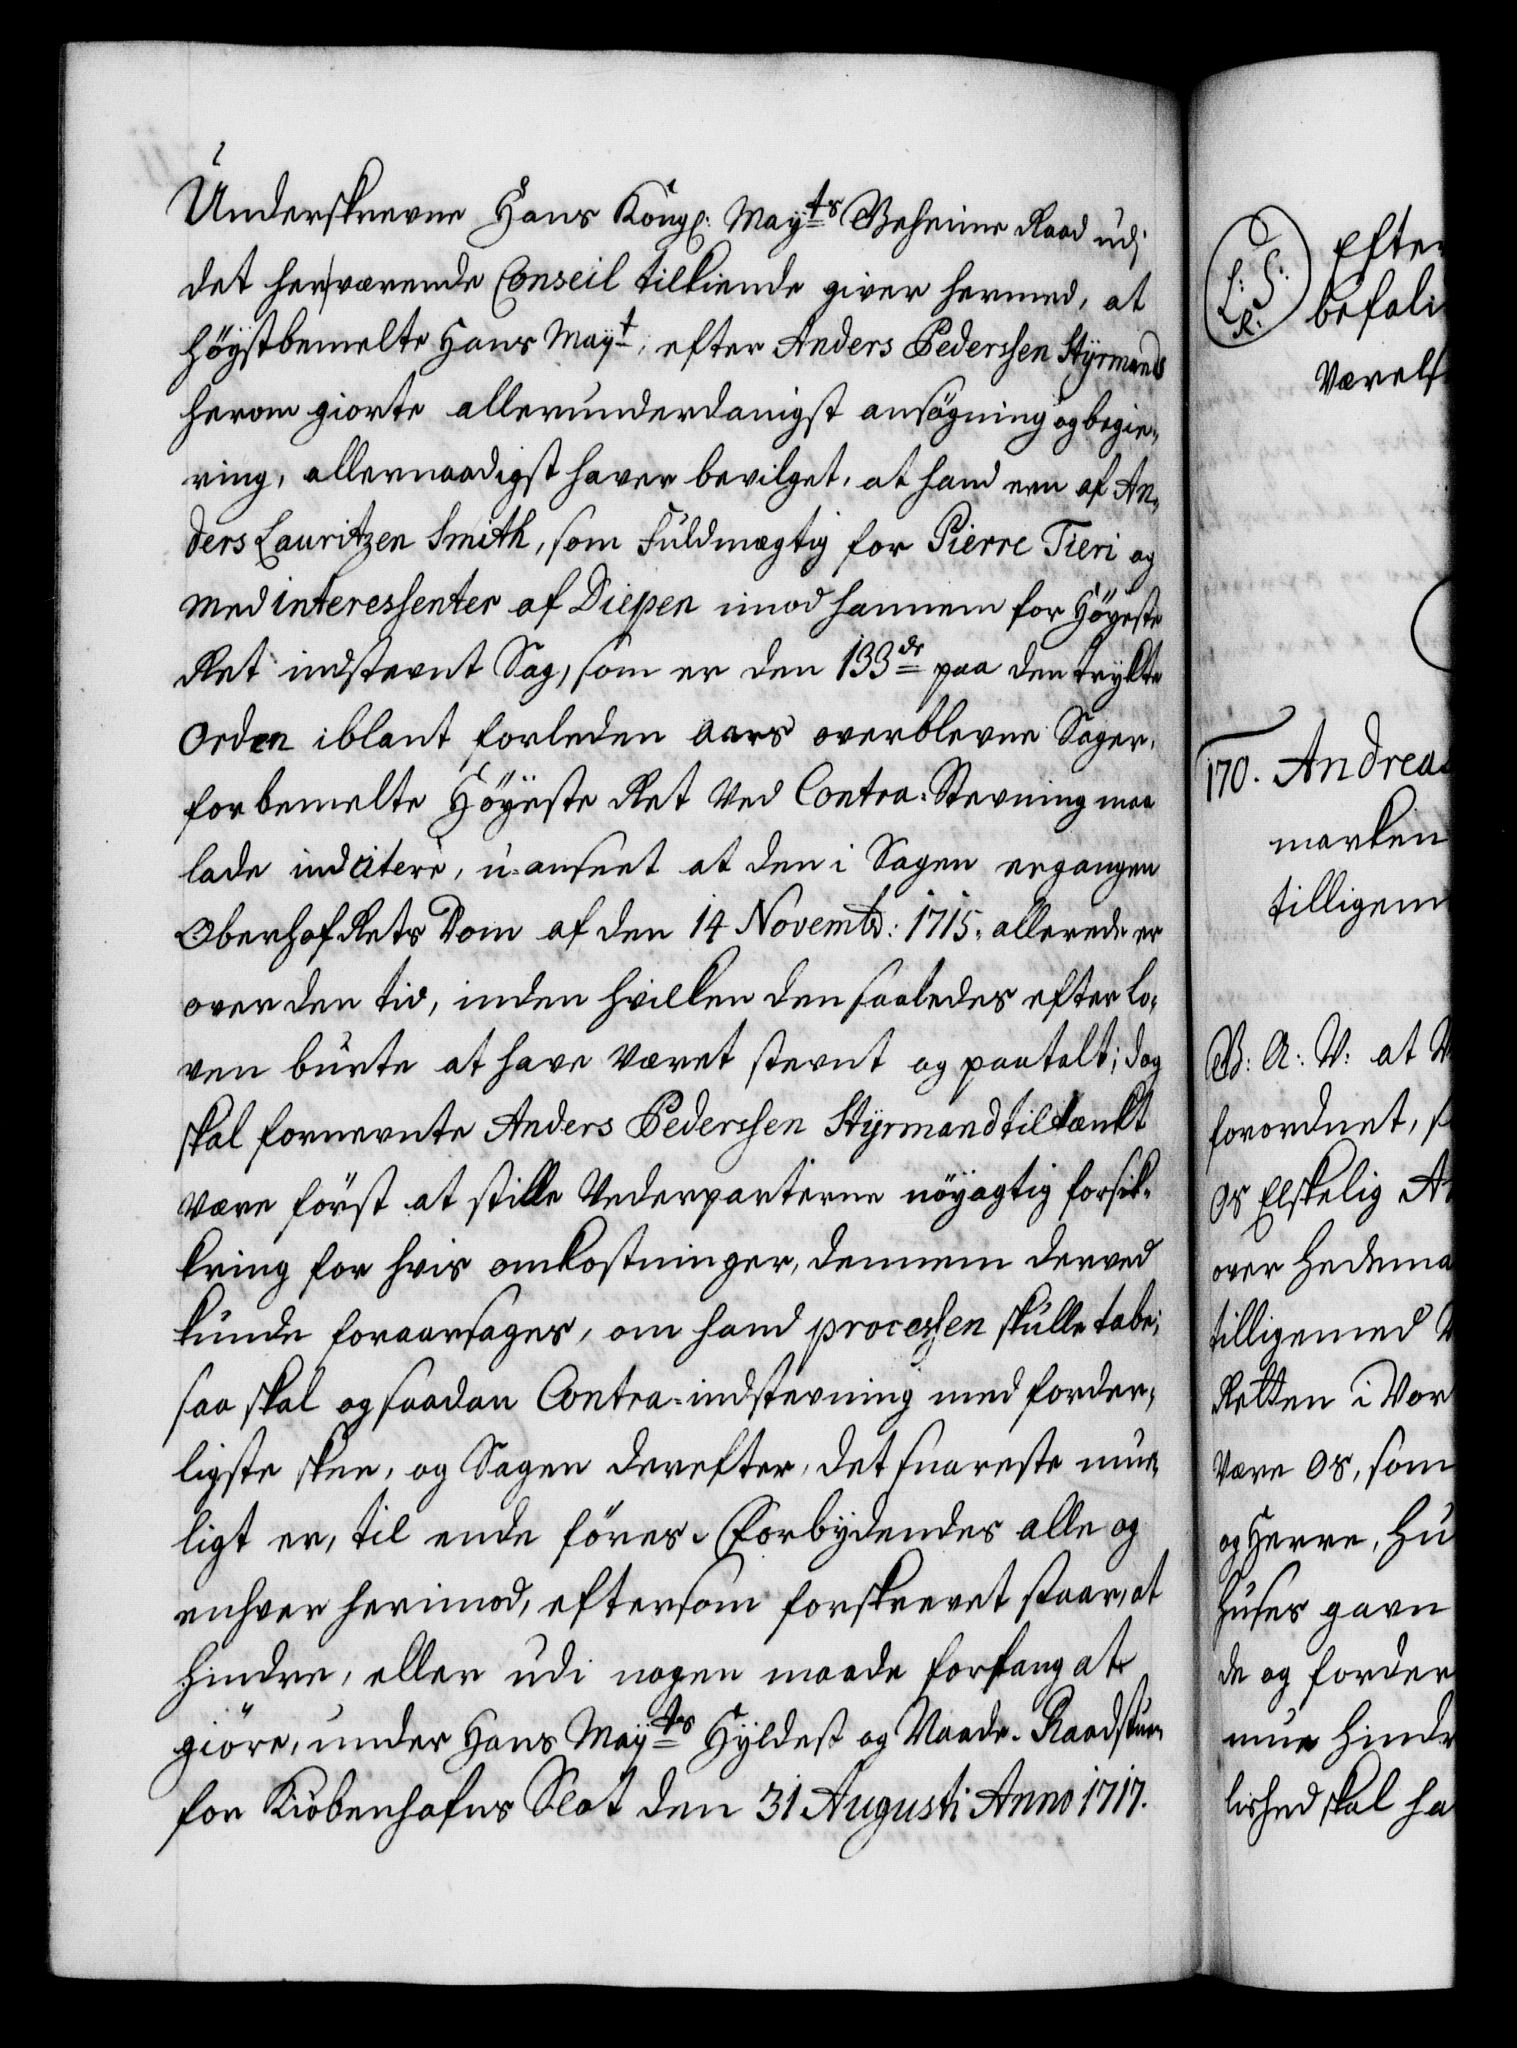 Underskrevne Hans Kongl: May:ts Geheime Raad udj
det herværende Conseil tilkiende giver hermed, at
höystbemelte Hans May:t, efter Anders Pederssen Styrmands
herom giorte allerunderdanigst ansögning og begie,,
ring, allernaadigst haver bevilget, at hand een af An,,
ders Lauritzen Smith, som Fuldmægtig for Pierre Tieri og
Med interessenter af Diepen imod hannem for Höyeste
Ret indstevnt Sag, som er den 133de paa den trykte
Orden iblant forleden aars overblevne Sager,
for bemelte Höyeste Ret Ved Contra-Stevning maa
lade indcitere, u-anseet at den i Sagen ergangen
OberhofRets Dom af den 14 Novembr: 1715, allerede er
over den tid, inden hvilken den saaledes efter Lo,,
ven burte at have været stevnt og paatalt; dog
skal fornevnte Anders Pederssen Styrmand tiltænkt
være först at stille Vederparterne nöyagtig forsik,,
kring for hvis omkostninger, dennem derved
kunde foraarsages, om hand processen skulle tabe;
saa skal og saadan Contra-indstevning med forder,,
ligste skee, og Sagen derefter, det snareste mue,,
ligt er, til ende föres. Forbydendes alle og
enhver herimod, eftersom forskrevet staar, at
hindre, eller udi nogen maade forfang at
giöre, under Hans May:ts Hyldest og Naade. Raadstuen
for Kiöbenhafns Slot den 31 Augusti Anno 1717.
L: S:
R:
Efter
befali
Værelse
170. Andreas
marken
tilligem
G: A: V: at V
forordnet, s
Os Elskelig A
over Hedema
tilligemed V
Retten i Vor
være Os, som
og Herre, Hu
Huses gavn
de og forder
mue Hindr
lished skal ha